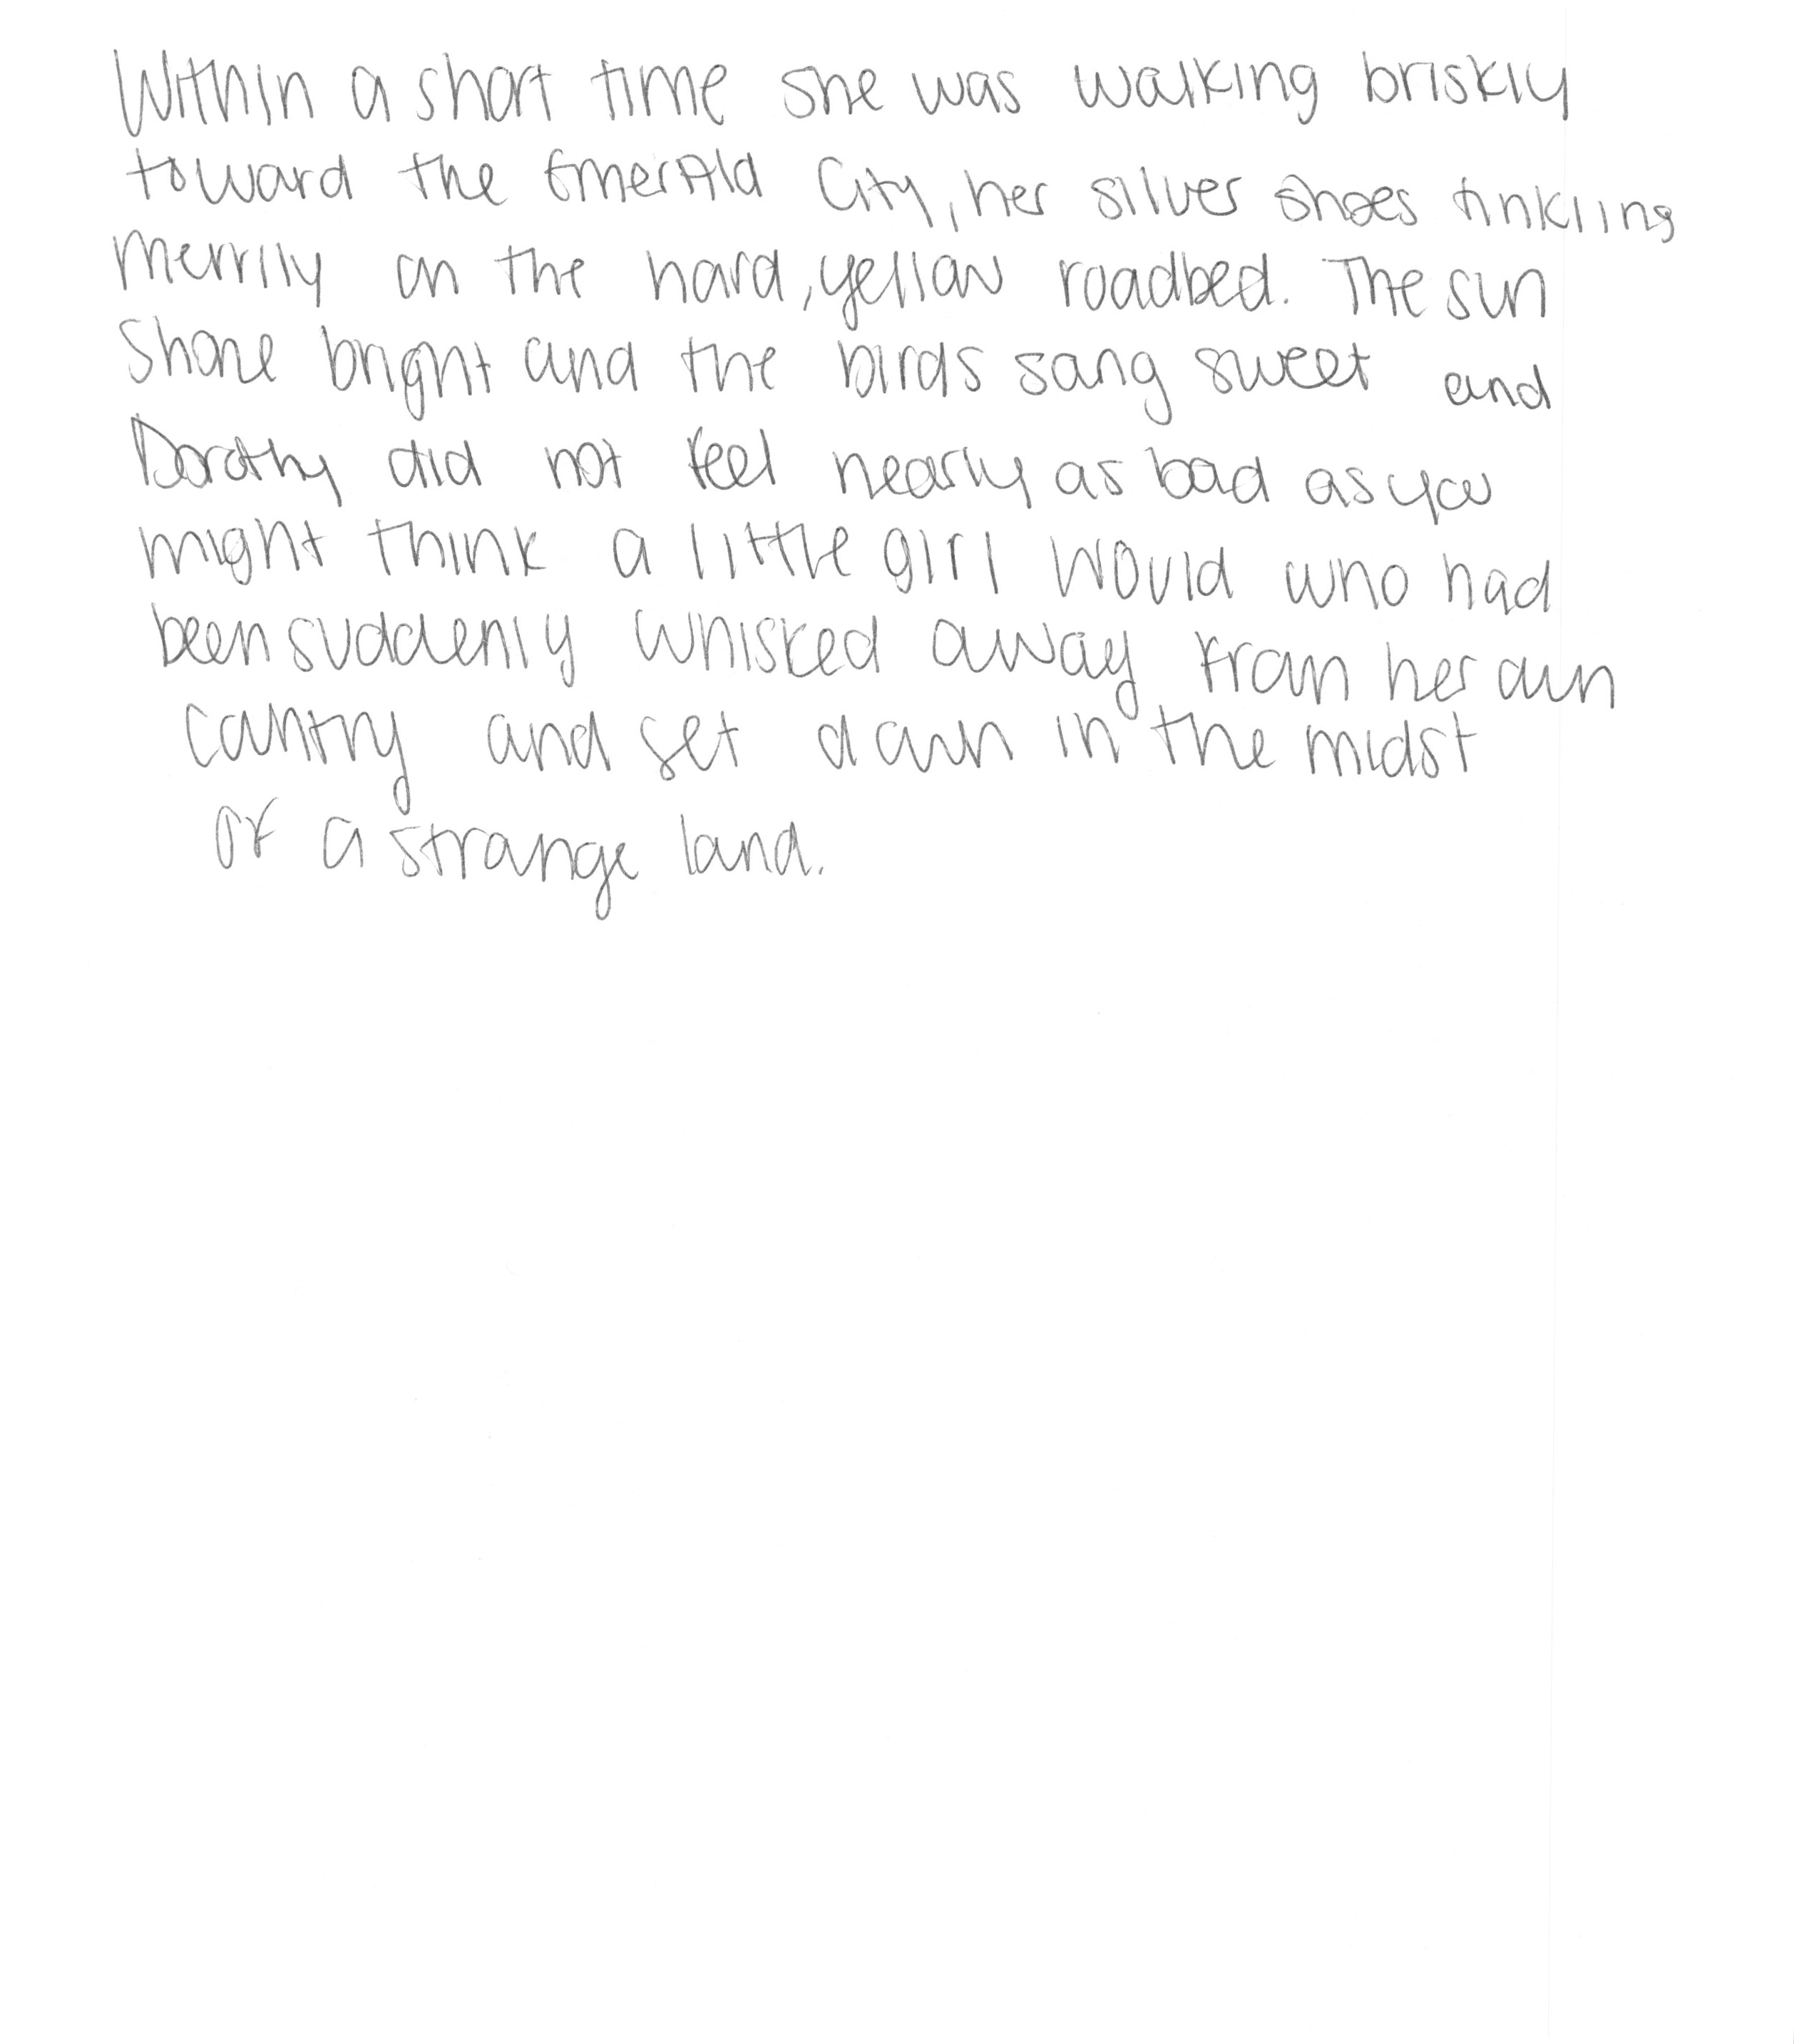 Within a short time she was walking briskly
toward the Emerald City, her silver shoes tinkling
merrily on the hard, yellow roadbed. The sun
shone bright and the birds sang sweet and
Dorothy did not feel nearly as bad as you
might think a little girl would who had
been suddenly whisked away from her own
country and set down in the midst
of a strange land.